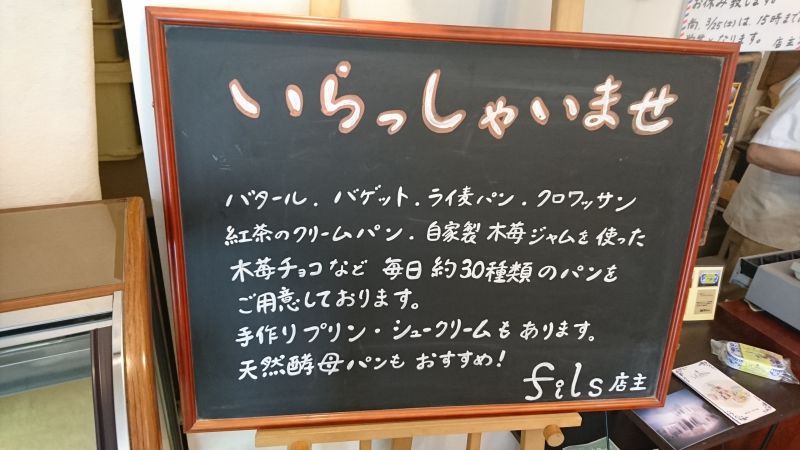 いらっしゃいませ
バタール．バゲット．ライ麦パン．クロワッサン
紅茶のクリームパン．自家製 木苺ジャムを使った
木苺チョコなど 毎日 約30種類のパンを
ご用意しております。
手作りプリン・シュークリームもあります。
天然酵母パンも おすすめ！
fils 店主
お休み致します。
尚、3/25(土)は、15時まで
となります。 店主